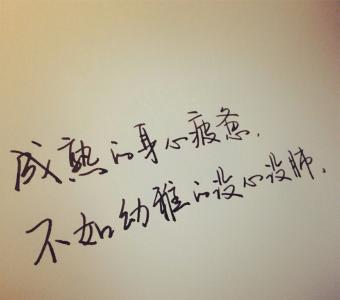 成熟的身心疲惫，
不如幼稚的没心没肺．